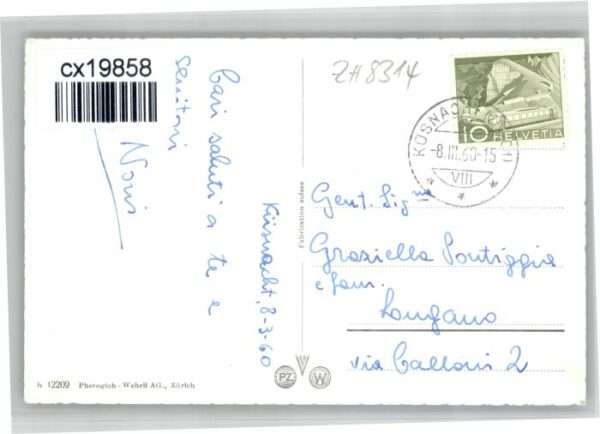 cx19858
ZH 8314
10 HELVETIA
KÜSNACHT (ZÜRICH)
-8.III.60-15
VIII
Küsnacht, 8-3-60
Cari saluti a te e
genitori
Noris
Fabrication suisse
Gent. Sig.na
Graziella Pontiggia
e fam.
Lougano
via Balloni 2
h 12209 Photoglob-Wehrli AG., Zürich
PZ W